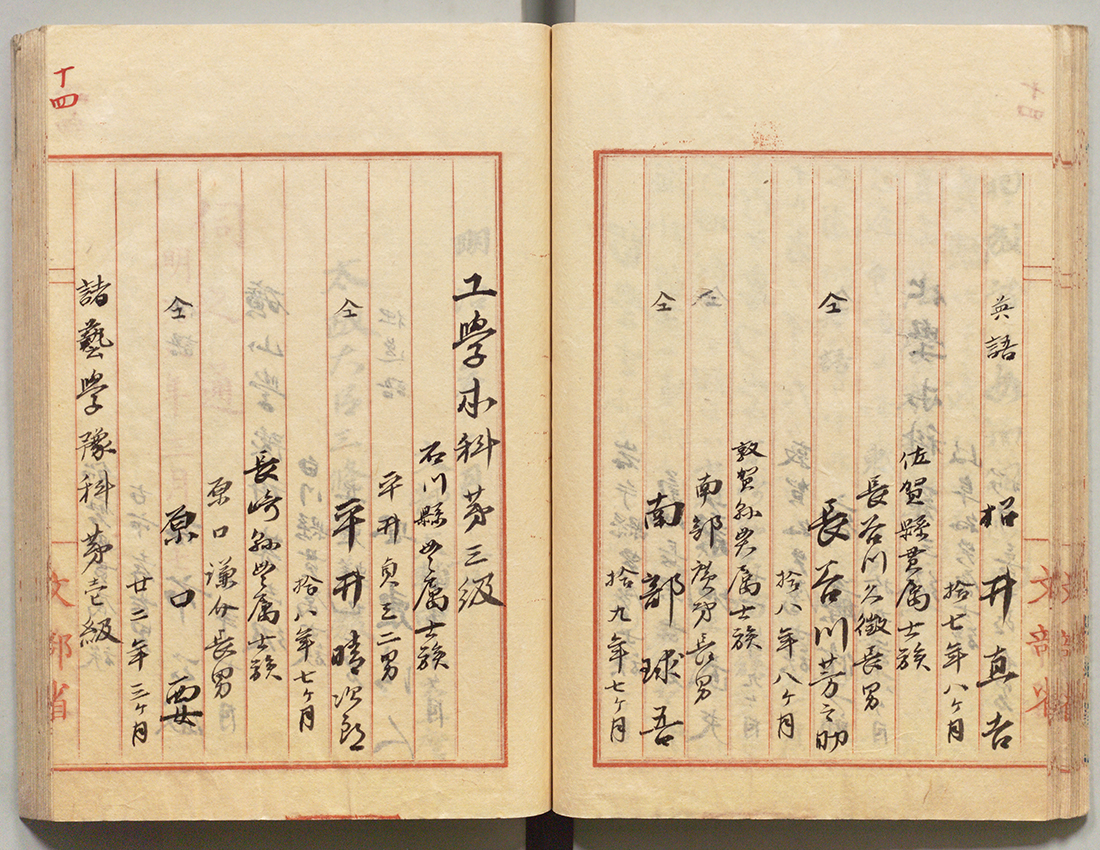 英語 松井直吉
拾七年八ヶ月
佐賀縣貫属士族
長谷川久徴長男
仝 長谷川芳之助
拾八年八ヶ月
敦賀縣貫属士族
仝 南部
長男
仝 南部球吾
拾九年七ヶ月
文部省
十四
工學本科第三級
石川縣貫属士族
平井
二男
仝 平井晴次郎
拾八年七ヶ月
長崎縣貫属士族
原口謙介長男
仝 原口要
廿二年三ヶ月
諸藝學豫科第壱級
文部省